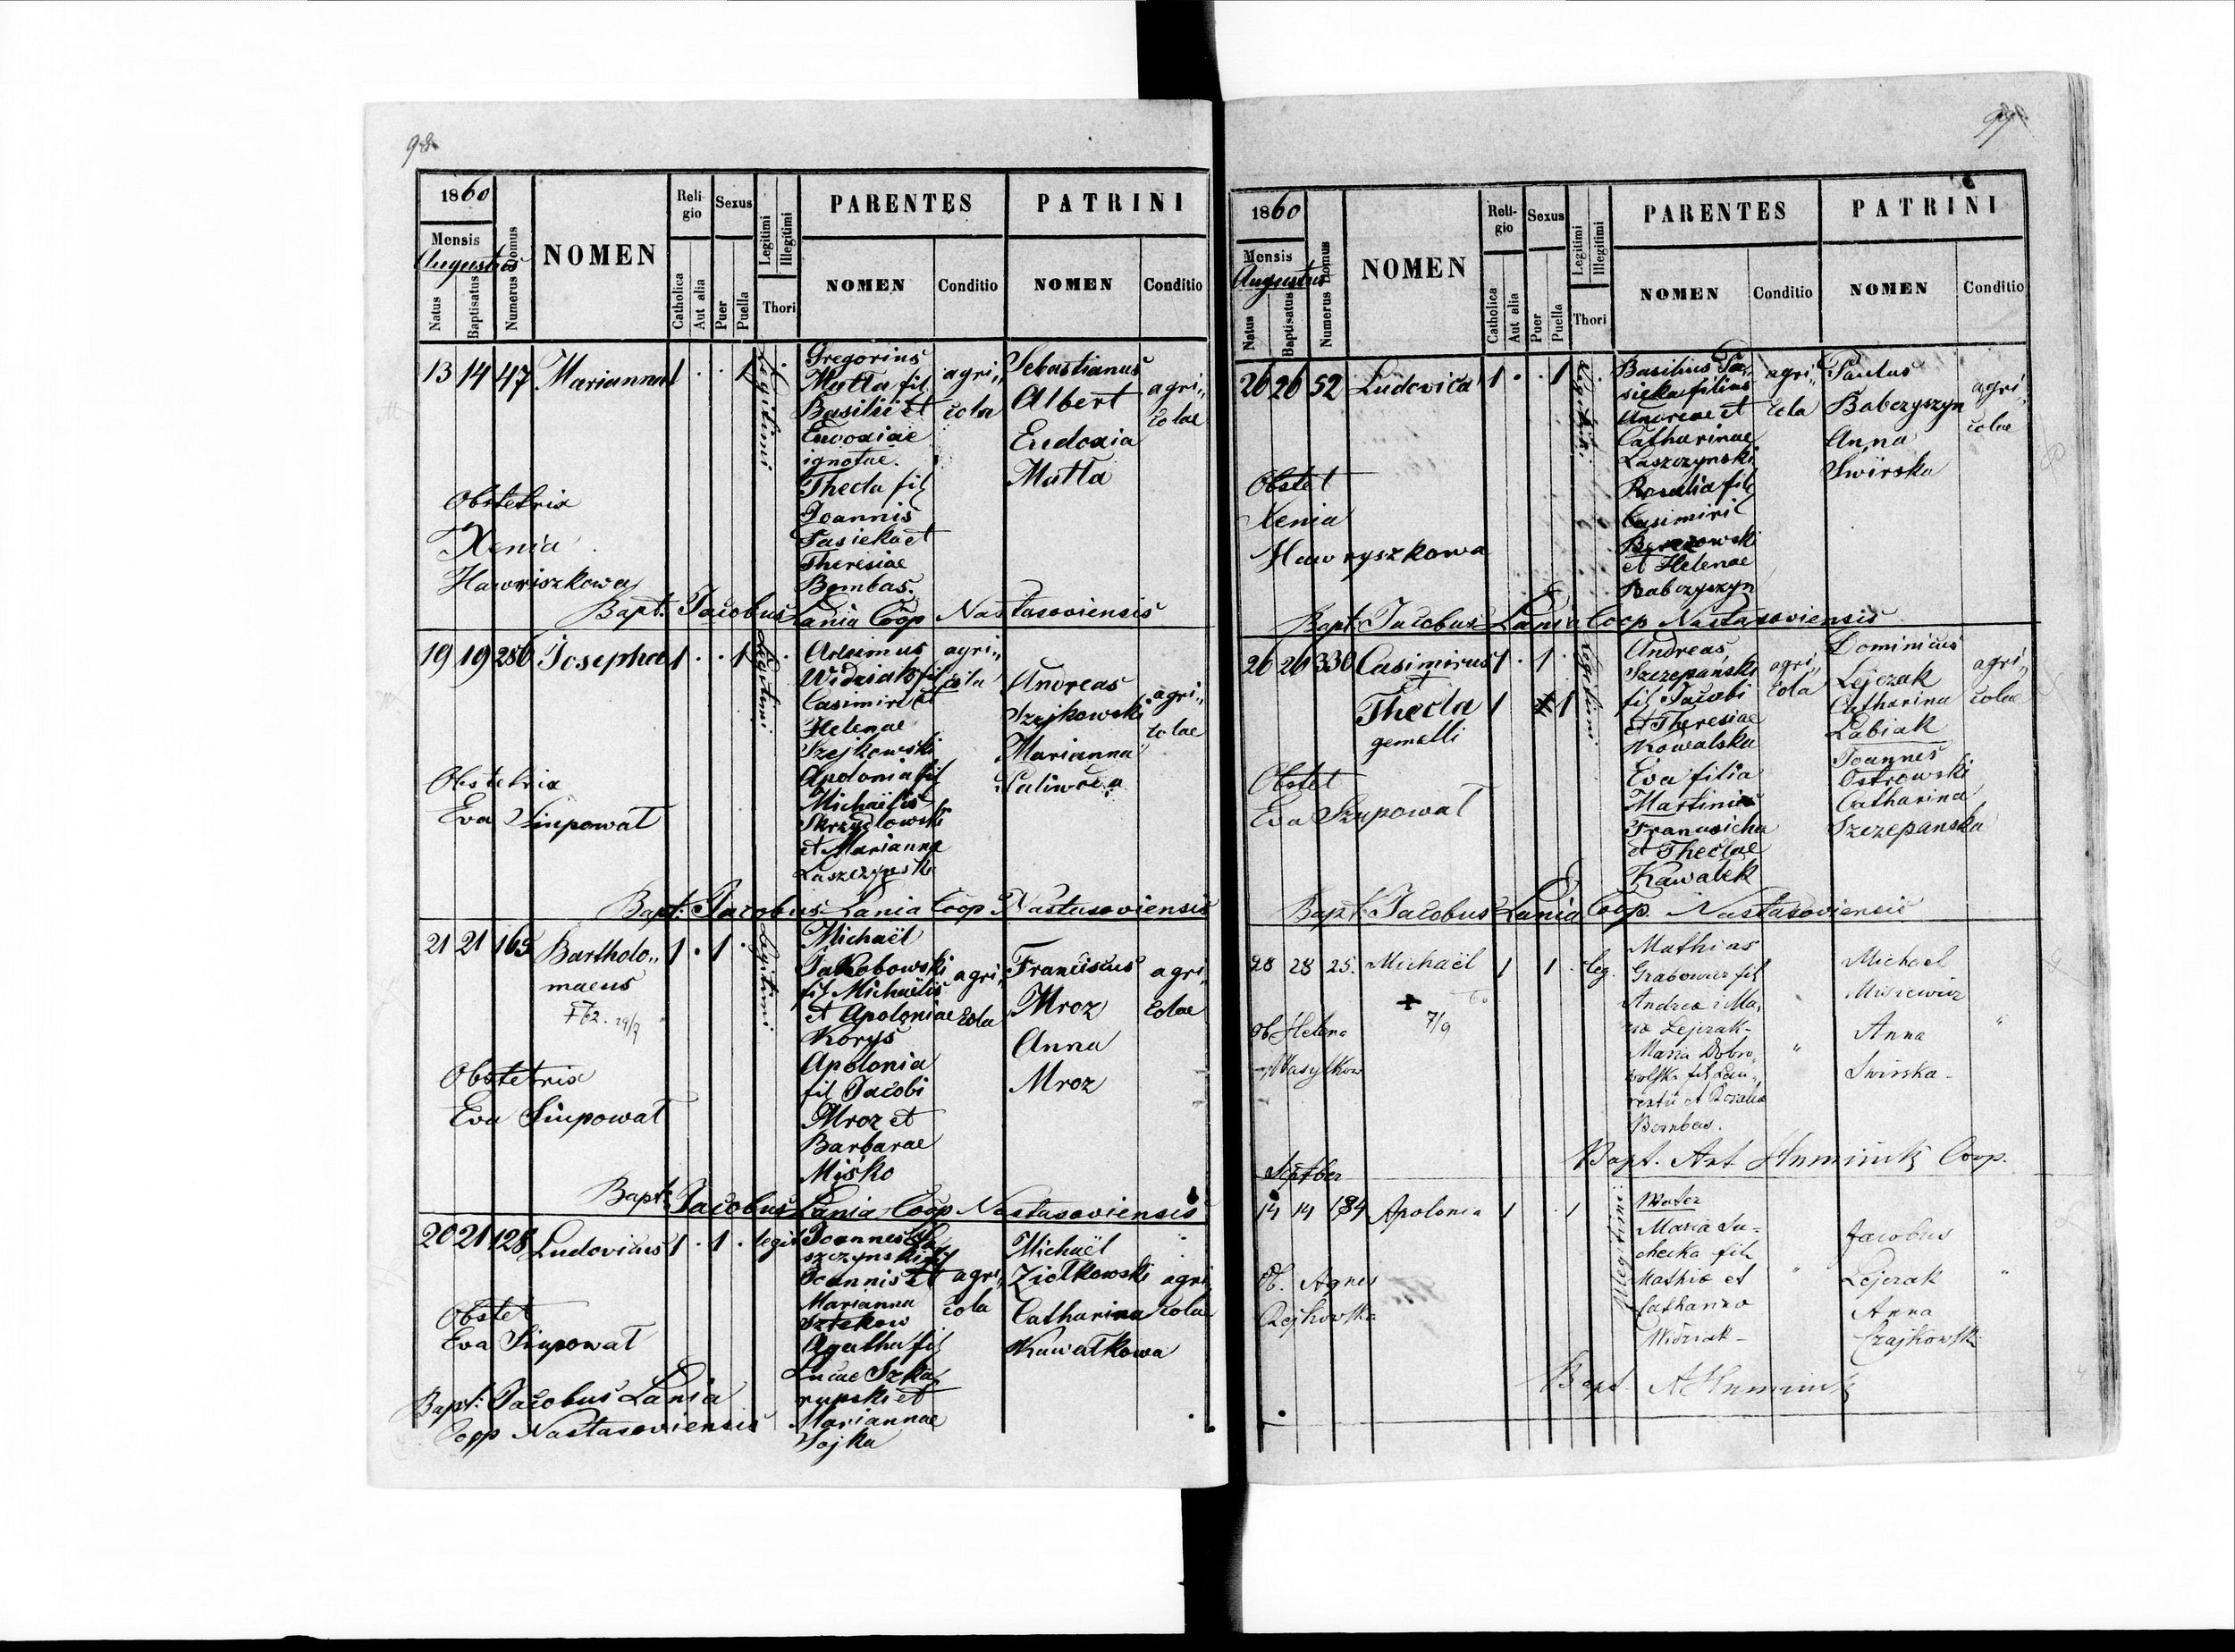 98
1860
Mensis
Augustus
Natus
Baptisatus
Numerus Domus
NOMEN
Religio
Catholica
Aut alia
Sexus
Puer
Puella
Legitimi
Illegitimi
Thori
PARENTES
NOMEN
Conditio
PATRINI
NOMEN
Conditio
13 14 47 Marianna 1 . . 1
Legitimi
Gregorius
Mutta fil
Basilii et
Eudoxiae
ignotae.
Thecla fil
Joannis
Pasieka et
Theresiae
Bombas.
agri„
cola
Sebastianus
Albert
Eudoxia
Mutta
agri„
colae
Obstetrix
Xenia
Hawriszkowa
Bapt: Jacobus Lania Coop Nastasoviensis
19 19 286 Josepha 1 . . 1
Legitimi
Widziak fil
Casimiri et
Helenae
Szejkowski
Apolonia fil
Michaëlis
Skrzydlowski
et Marianna
Laszczynski
agri„
cola
Andreas
Szejkowski
Marianna
agri„
colae
Obstetrix
Eva Siupowat
Bapt: Jacobus Lania Coop Nastasoviensis
21 21 165 Bartholo„ 1 . 1 .
maeus
+ 62. 29/7
Legitimi
Michaël
Jakobowski
fil Michaëlis
et Apoloniae
Korys
Apolonia
fil Jacobi
Mroz et
Barbarae
Miśko
agri„
cola
Franciscus
Mroz
Anna
Mroz
agri„
colae
Obstetrix
Eva Siupowat
Bapt: Jacobus Lania Coop Nastasoviensis
20 21 128 Ludovicus 1 . 1 . legit
Joannes La„
szczynski fil
Joannis et
Marianna
Sztekow
Agatha fil
Lucae Szka„
rupski et
Mariannae
Wojka
agri„
cola
Michaël
Ziołkowski
Catharina
Kawałkowa
agri„
colae
Obstet
Eva Siupowat
Bapt: Jacobus Lania
Coop Nastasoviensis
99
1860
Mensis
Augustus
Natus
Baptisatus
Numerus Domus
NOMEN
Religio
Catholica
Aut alia
Sexus
Puer
Puella
Legitimi
Illegitimi
Thori
PARENTES
NOMEN
Conditio
PATRINI
NOMEN
Conditio
26 26 52 Ludovica 1 . . 1
Legitimi
Basilius Pa„
sieka filius
Andreae et
Catharinae
Laszczynski
Rosalia fil
Casimiri
Berezowski
et Helenae
Babczyszyn
agri„
cola
Paulus
Babczyszyn
Anna
Swirska
agri„
colae
Obstet
Xenia
Hawryszkowa
Bapt: Jacobus Lania Coop Nastasoviensis
26 26 330 Casimirus 1 . 1 .
et
Thecla 1 1
gemelli
Legitimi
Andreas
Szczepański
fil Jacobi
et Theresiae
Kowalska
Eva filia
Martini
et Theclae
Kawalek
agri„
cola
Dominicus
Lejczak
Catharina
Labiak
Joannes
Ostrowski
Catharina
Szczepanska
agri„
colae
Obstet
Eva Szupowat
Bapt: Jacobus Lania Coop. Nastasoviensis
28 28 25. Michaël 1 1 . leg.
+ 7/9 60
Mathias
Grabowicz fil
Andreæ i Ma„
riæ Lejczak-
Maria Dobro„
wolska fil Lau„
rentii et Rosalia
Bombas.
"
Michael
Misiewicz
Anna
Swirska-
"
Ob Helena
Wasylkow
Bapt. Ant Huminicki Coop.
Septber
14 14 184 Apolonia 1 . 1
Illegitimi
Mater
Maria Su-
checka fil
Mathiæ et
Catharina
Widziak-
"
Jacobus
Lejczak
Anna
Czajkowsk
"
Ob. Agnes
Rejkowska
Bapt. A Huminicki